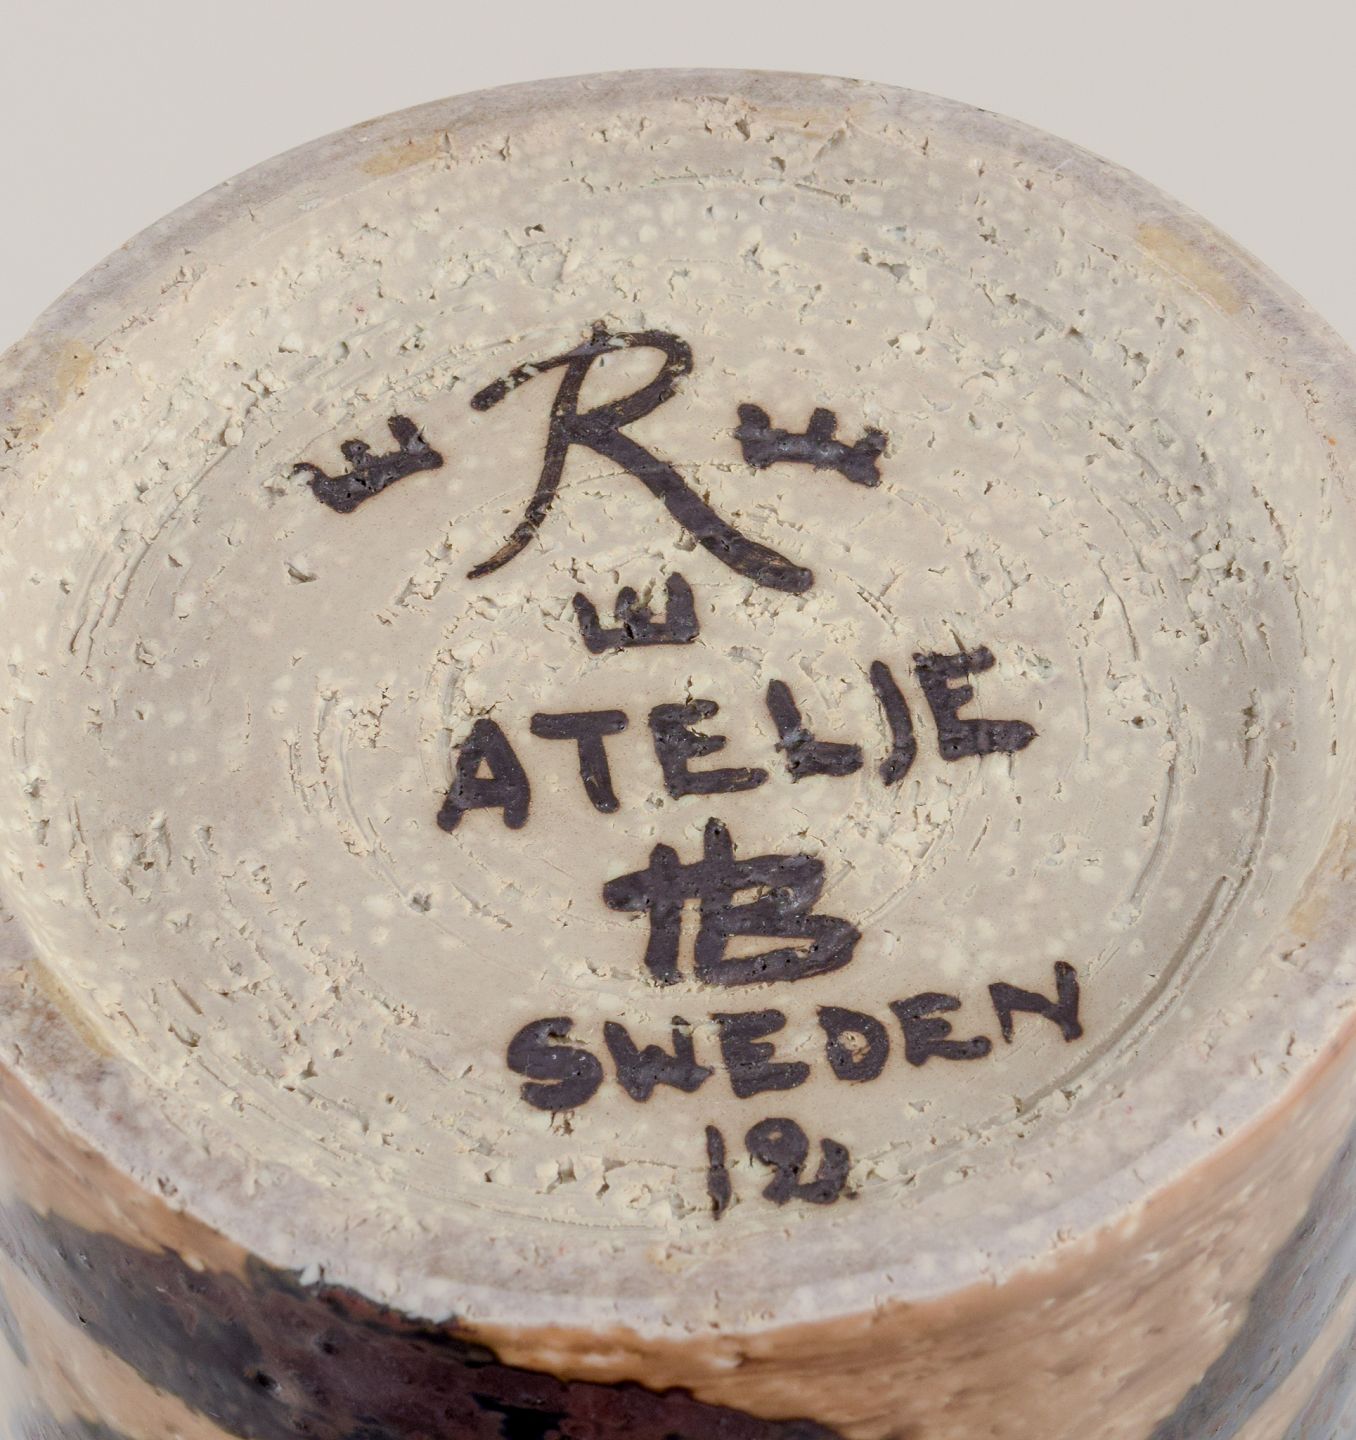 R
ATELJE
HB
SWEDEN
12